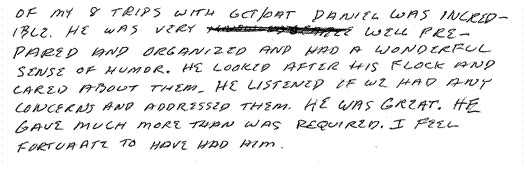 OF MY 8 TRIPS WITH GCT/OAT DANIEL WAS INCRED-
IBLE. HE WAS VERY WELL PRE-
PARED AND ORGANIZED AND HAD A WONDERFUL
SENSE OF HUMOR. HE LOOKED AFTER HIS FLOCK AND
CARED ABOUT THEM. HE LISTENED IF WE HAD ANY
CONCERNS AND ADDRESSED THEM. HE WAS GREAT. HE
GAVE MUCH MORE THAN WAS REQUIRED. I FEEL
FORTUNATE TO HAVE HAD HIM.